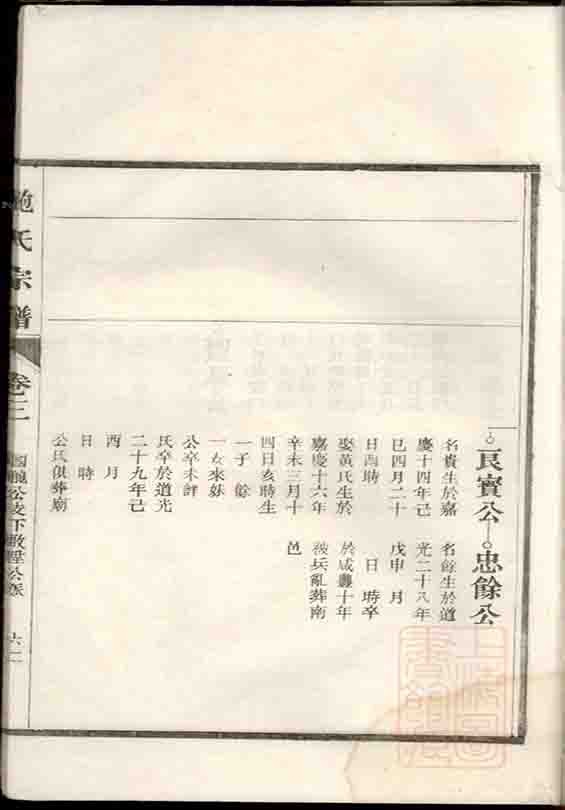 民實公
名貴生於嘉
慶十四年己
巳四月二十
日酉時
娶黃氏生於
嘉慶十六年
辛未三月十
四日亥時生
一子 餘
一女來妹
公卒未詳
氏卒於道光
二十九年己
酉 月
日 時
公氏俱葬廟
忠餘公
名餘生於道
光二十八年
戊申 月
日 時卒
於咸豐十年
被兵亂葬南
邑
施氏宗譜
卷三
公支下敬陞公派
六二
上海圖
書館藏